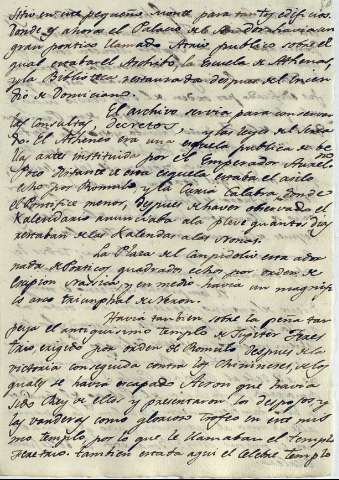 sitio en este pequeño monte para tantos edificios.
Donde ay ahora el Palacio de los Senadores havia un
gran portico llamado Atrio publico sobre el
qual estaba el Archibo, la Escuela de Athenas,
y la Biblioteca restaurada despues del Incen
dio de Domiciano.
El archivo servia para conservar
las consultas, decretos, y las leyes del Sena
do. El Atheneo era una escuela publica de be
llas artes instituida por el Emperador
Poco distante de esta escuela estaba el asilo
echo por Romulo y la Curia Calabra, donde
el Pontifice menor, despues de haver observado el
Kalendario anunciaba ala pleve quantos dias
restaban de las Kalendas alas Nonas.
La Plaza del Campidolio esta ador
nada de Porticos quadrados echos por orden de
Cipion Nasica, y en medio havia un magnifi
co arco triunphal de Neron.
Havia tambien sobre la peña tar
peya el antiquisimo templo de Jupiter Feres
trio erigido por orden de Romulo despues de la
victoria conseguida contra los de los
quales se havia escapado Acron que havia
sido Rey de ellos y presentaron los despojos y
las vanderas como glorioso trofeo en este mis
mo templo por lo que le llamaban el templo
Feretrio. tambien estaba aqui el celebre templo